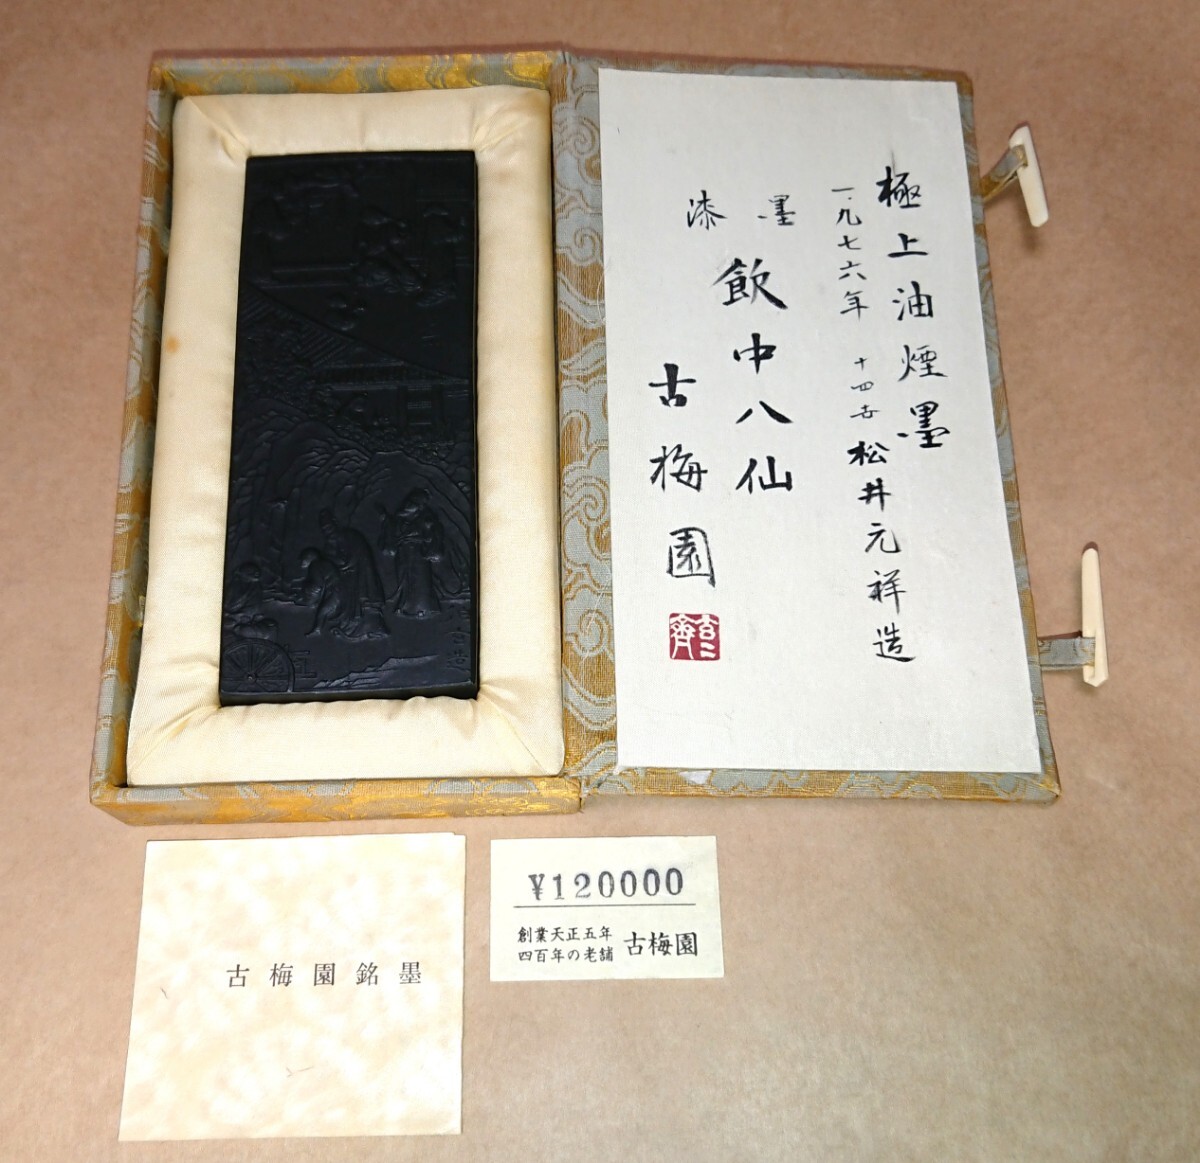 極上油煙墨
一九七六年 十四世 松井元祥造
漆墨
飲中八仙
古梅園
¥120000
創業天正五年
四百年の老舗 古梅園
古梅園銘墨